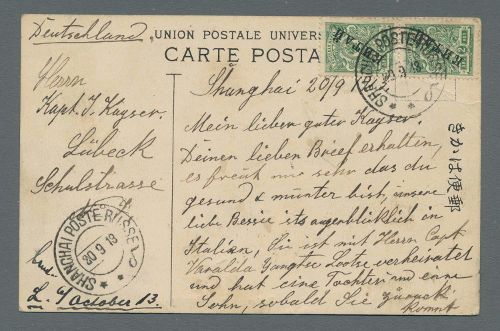 Deutschland
UNION POSTALE UNIVERS
CARTE POSTA
Herrn
Kapt. J. Kayser.
Lübeck
Schulstrasse
Shanghai 20/9
Mein lieber guter Kayser.
Deinen lieben Brief erhalten,
es freut mir sehr das du
gesund & munter bist, unsere
liebe Bessie ist augenblicklich in
Italien, Sie ist mit Herrn Capt
Yangtse Lootse verheiratet
und hat eine Tochter und eine
Sohn, sobald Sie zurück
kommt
きかは便郵
SHANGHAI POSTE RUSSE
20 9 13
SHANGHAI POSTE RUSSE
20 9 13
October 13.